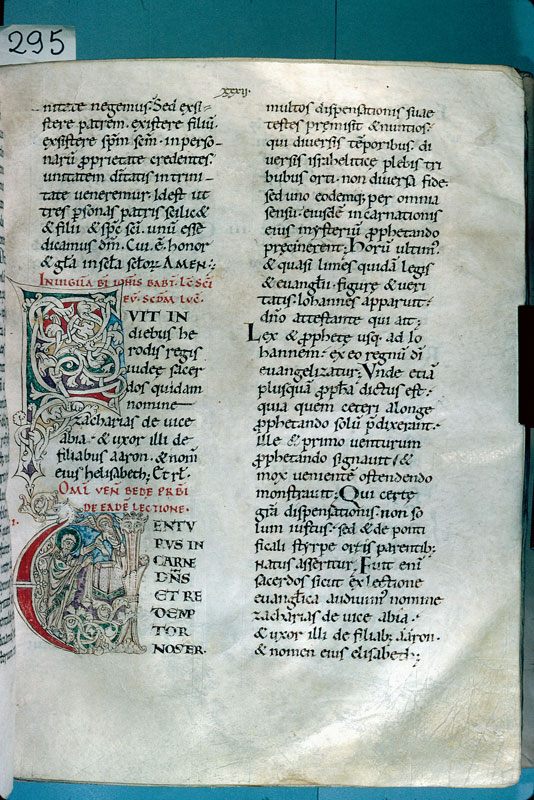 295
xxxij.
nitate negemus. Sed exsi-
stere patrem. existere filiū.
exsistere spm̄ scm̄. in perso-
narū ꝓprietate credentes
unitatem diῑtatis in trini-
tate veneremur. Idest ut
tres ꝑsonas patris scilic&
& filii & spc̄ sci. unū esse
dicamus dm̄. Cui. ē. honor
& gla in secla sclor̄. AMEN:
IN VIGL̄A BI IOHIS BABT. LC̄ SC̄I
EV. SCDM LVC.
FVIT IN
diebus he
rodis regis
iudeę sacer
dos quidam
nomine
zacharias de vice
abia. & uxor illi de
filiabus aaron. & nom̄
eius helisabeth; Et rl.
OML VEN̄ BEDE PRBI
DE EADĒ LECTIONE.
VENTV
RVS IN
CARNE
DN̄S
ET RE
DEMP
TOR
NOSTER.
multos dispensationis suae
testes premisit & nuntios.
qui diversis tēporibus. di
versis israhelitice plebis tri
bubus orti. non diversa fide.
sed uno eodemq; per omnia
sensu. eiusdē incarnationis
eius mysteriū ꝓphetando
precinerent; Horū ultim᾽
& quasi limes quidā legis
& euanglii. figurę & veri
tatis Iohannes apparuit.
dn̄o attestante qui ait;
Lex & ꝓphetę usq. ad Io
hannem. ex eo regnū dī
euangelizatur; Vnde etiā
plusquā ꝓpħa dictus est.
quia quem ceteri alonge
ꝓphetando solū p̄dixerant.
ille & primo venturum
ꝓphetando signavit. &
mox venientē ostendendo
monstravit; Qui certe
grā dispensationis. non so
lum iustus. sed & de ponti
ficali styrpe ortis parentib;
natus asseritur; Fuit eni
sacerdos sicut ex lectione
euanglica audivim᾽ nomine
zacharias de vice abia.
& uxor illi de filiab; aaron.
& nomen eius elisabeth;